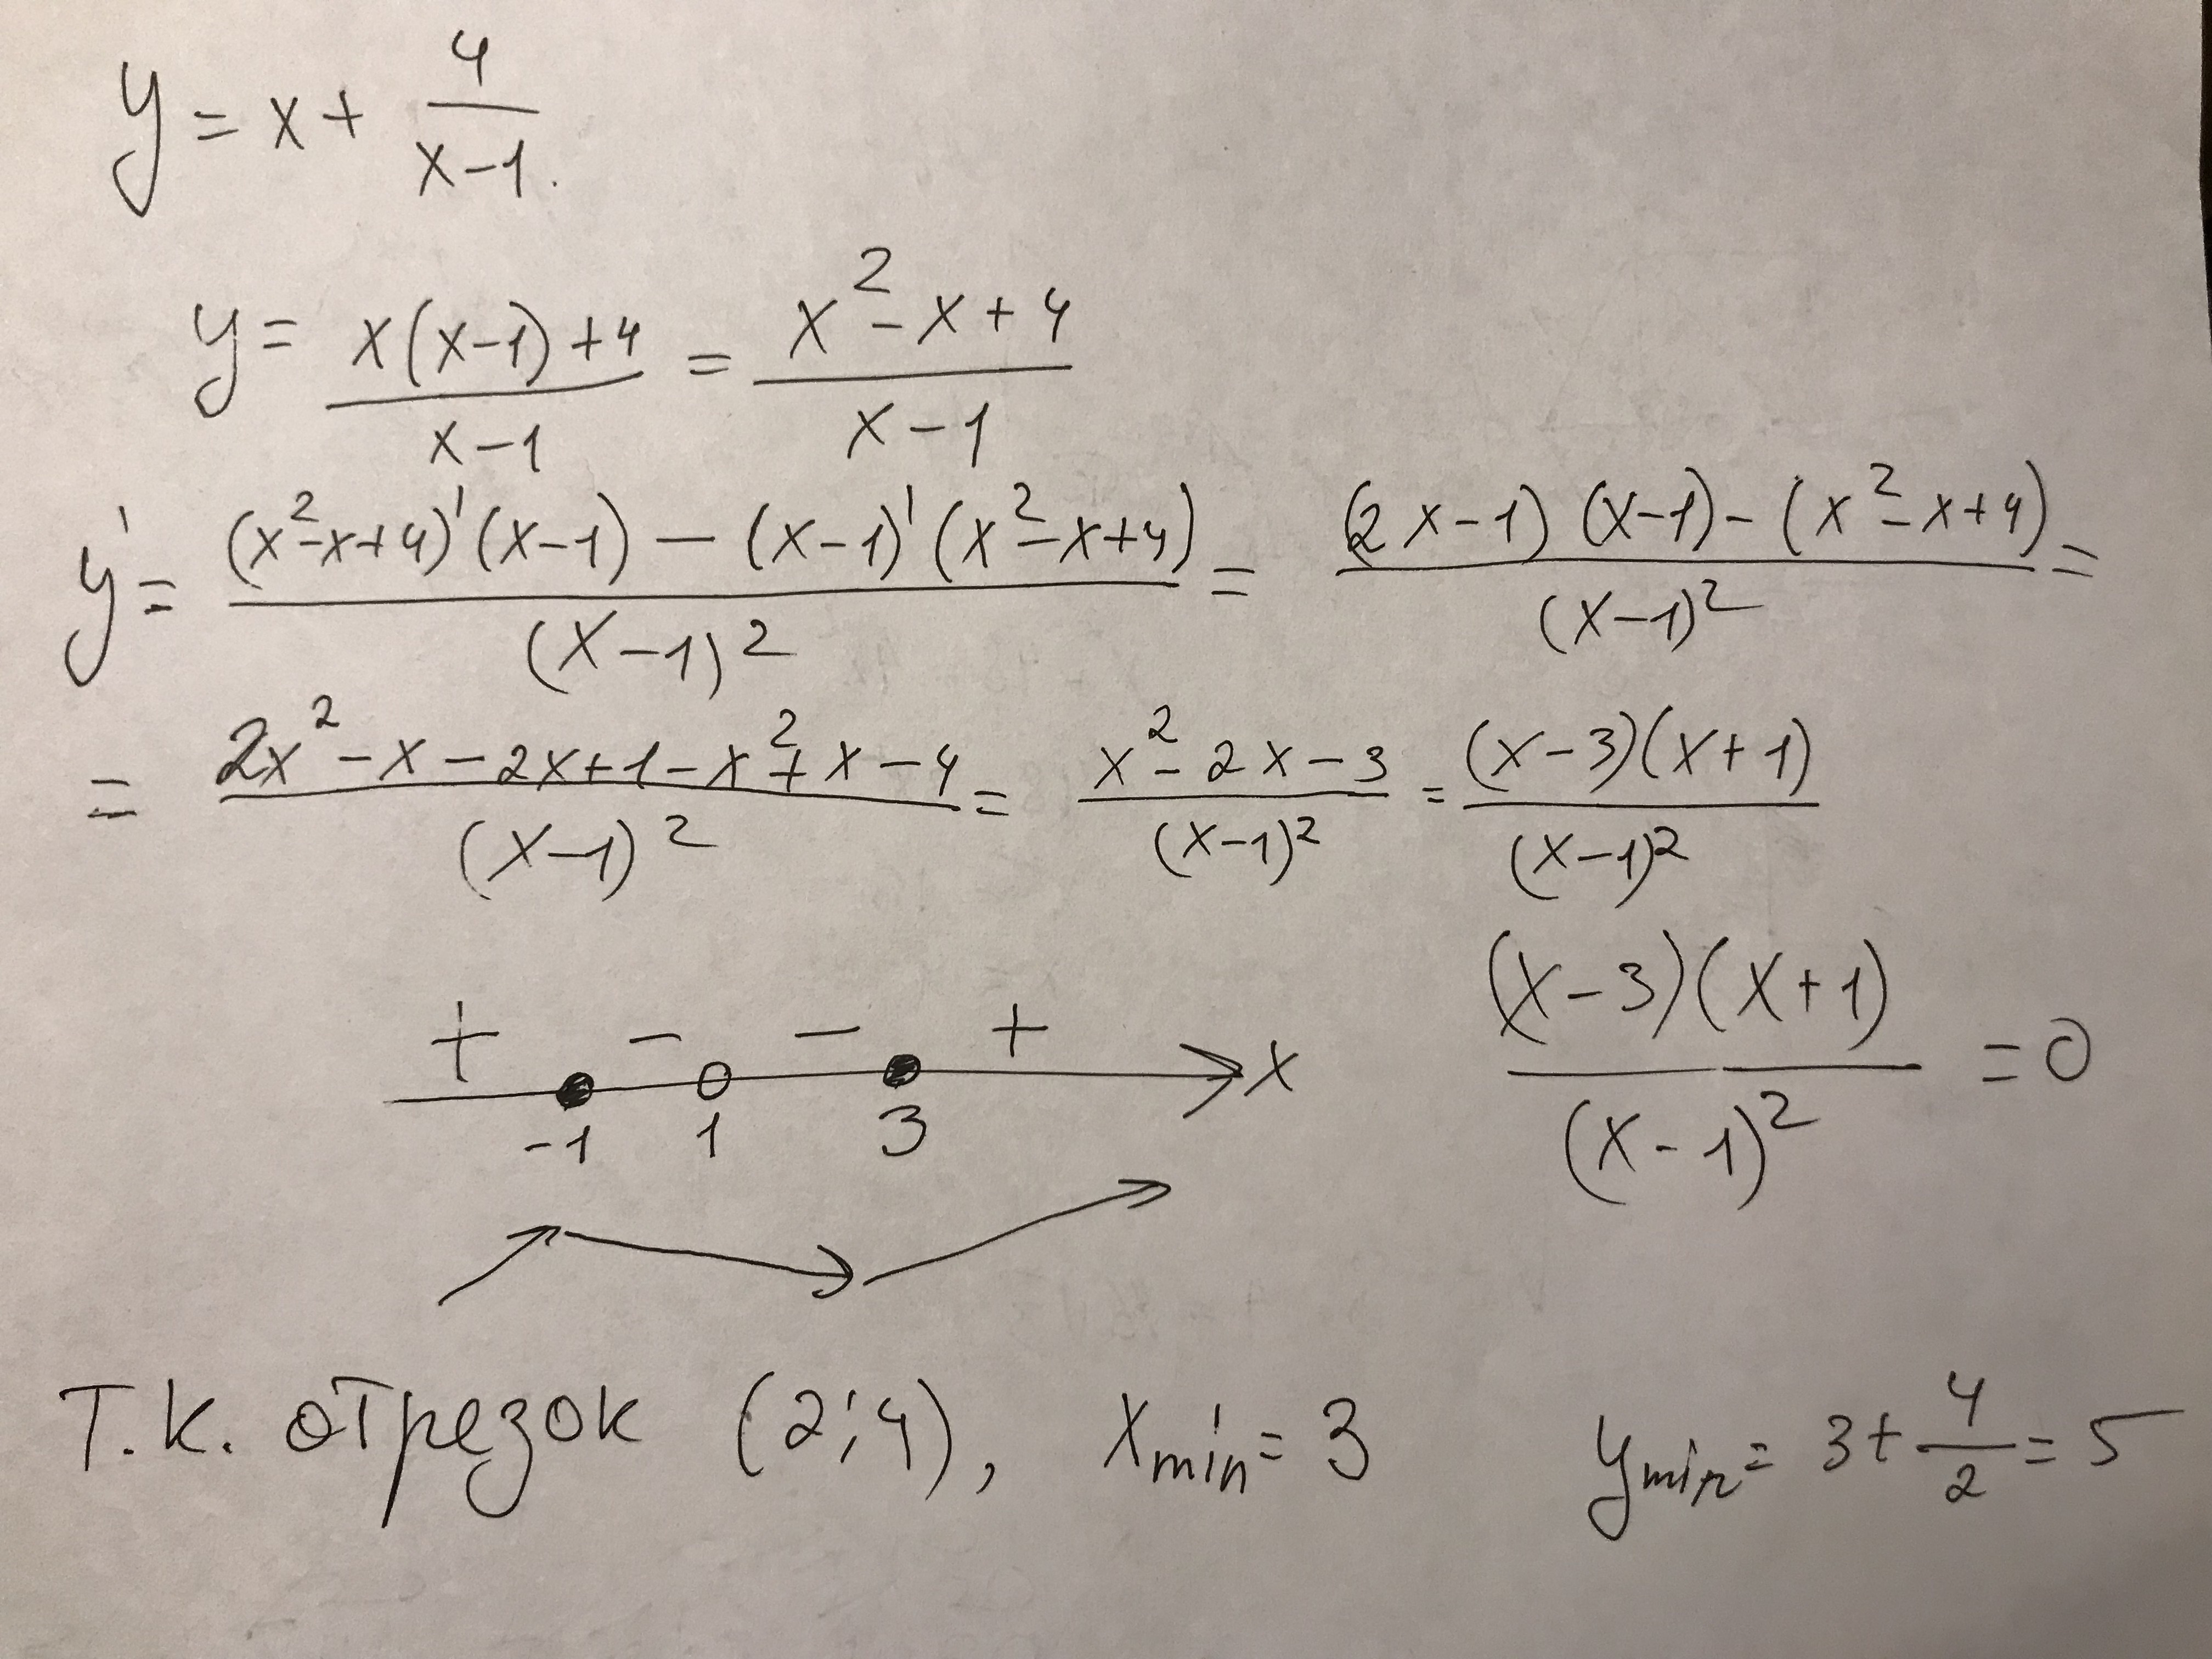 y = x + 4/(x-1).
y = (x(x-1)+4)/(x-1) = (x²-x+4)/(x-1)
y' = ((x²-x+4)'(x-1) - (x-1)'(x²-x+4))/(x-1)² = ((2x-1)(x-1) - (x²-x+4))/(x-1)² =
= (2x²-x-2x+1-x²+x-4)/(x-1)² = (x²-2x-3)/(x-1)² = ((x-3)(x+1))/(x-1)²
+ - - + x
-1 1 3
((x-3)(x+1))/(x-1)² = 0
Т.к. отрезок (2;4), xmin = 3 ymin = 3 + 4/2 = 5